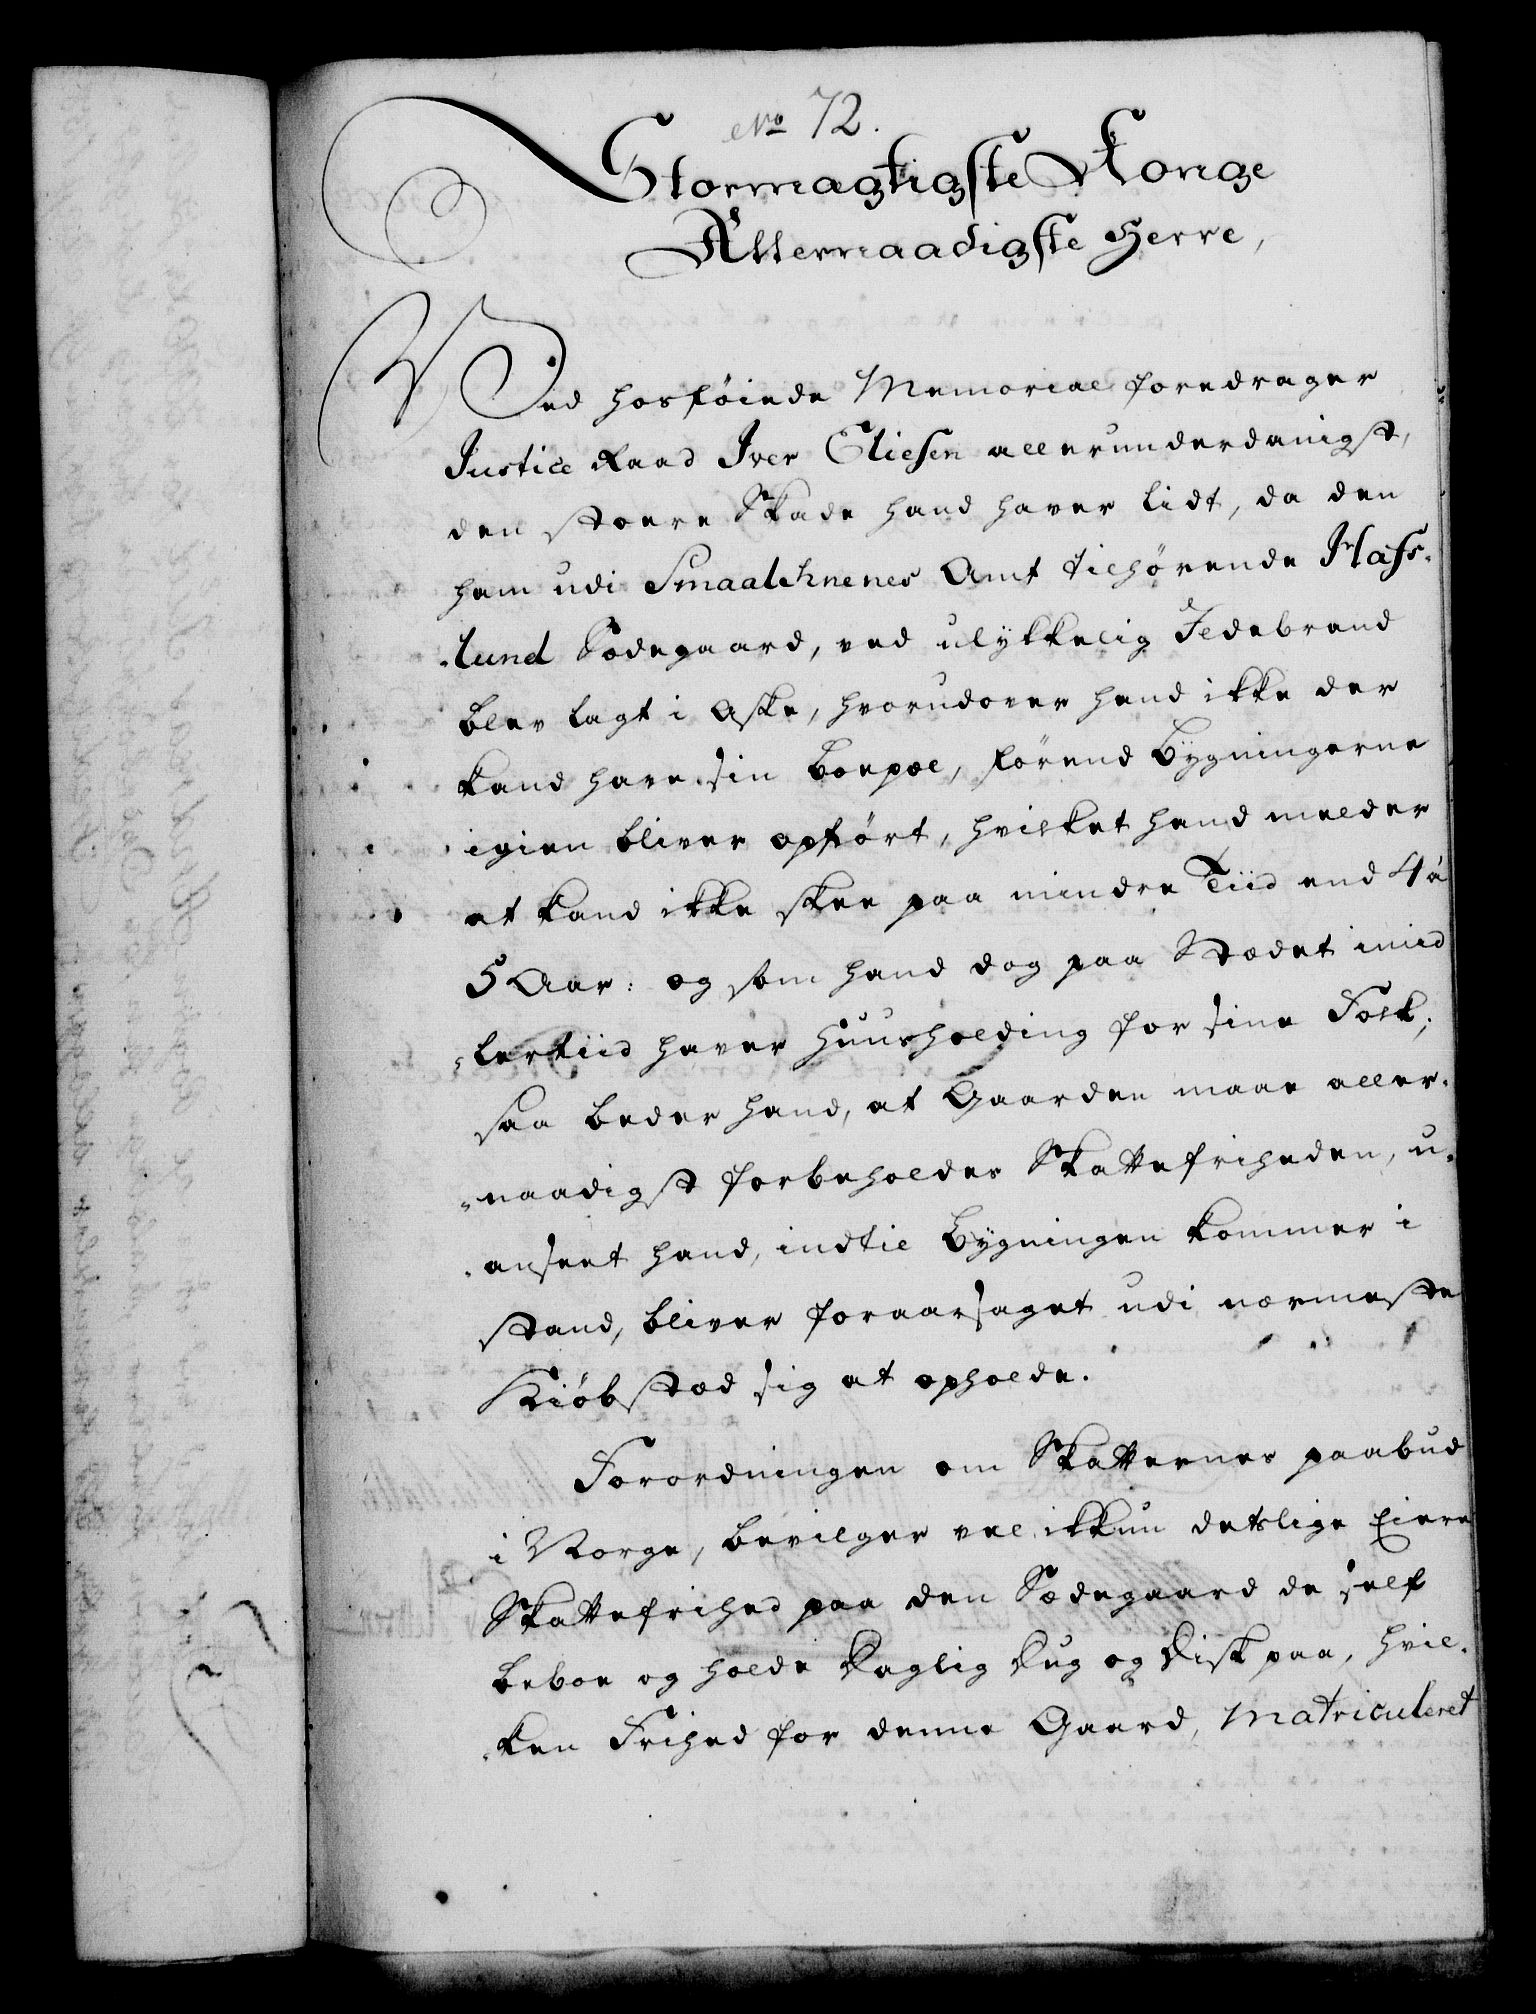 No 72.
Stormagtigste Konge
Allernaadigste Herre,
Ved hosføiede Memorial foredrager
Justice Raad Iver Eliesen allerunderdanigst,
den stoere Skade hand haver lidt, da den
ham udi Smaalehnenes Amt tilhørende Hafs-
-lund Sædegaard, ved ulykkelig Ildebrand
blev lagt i Aske, hvorudover hand ikke der
kand have sin boepæl, førend Bygningerne
igien bliver opført, hvilket hand melder
at kand ikke skee paa mindre Tiid end 4 à
5 Aar: og som hand dog paa Stædet imid
-lertiid haver Huusholding for sine Folk;
saa beder hand, at Gaarden maae aller-
-naadigst forbeholdes Skattefriheden, u-
-anseet hand, indtil Bygningen kommer i
stand, bliver foraarsaget udi nærmeste
Kiøbstæd sig at opholde.
Forordningen om Skatternes paabud
i Norge, bevilger vel ikkun detslige Eiere
Skattefrihed paa den Sædegaard de self
beboe og holde daglig Dug og Disk paa, hvil-
-ken Frihed for denne Gaard, Matriculeret